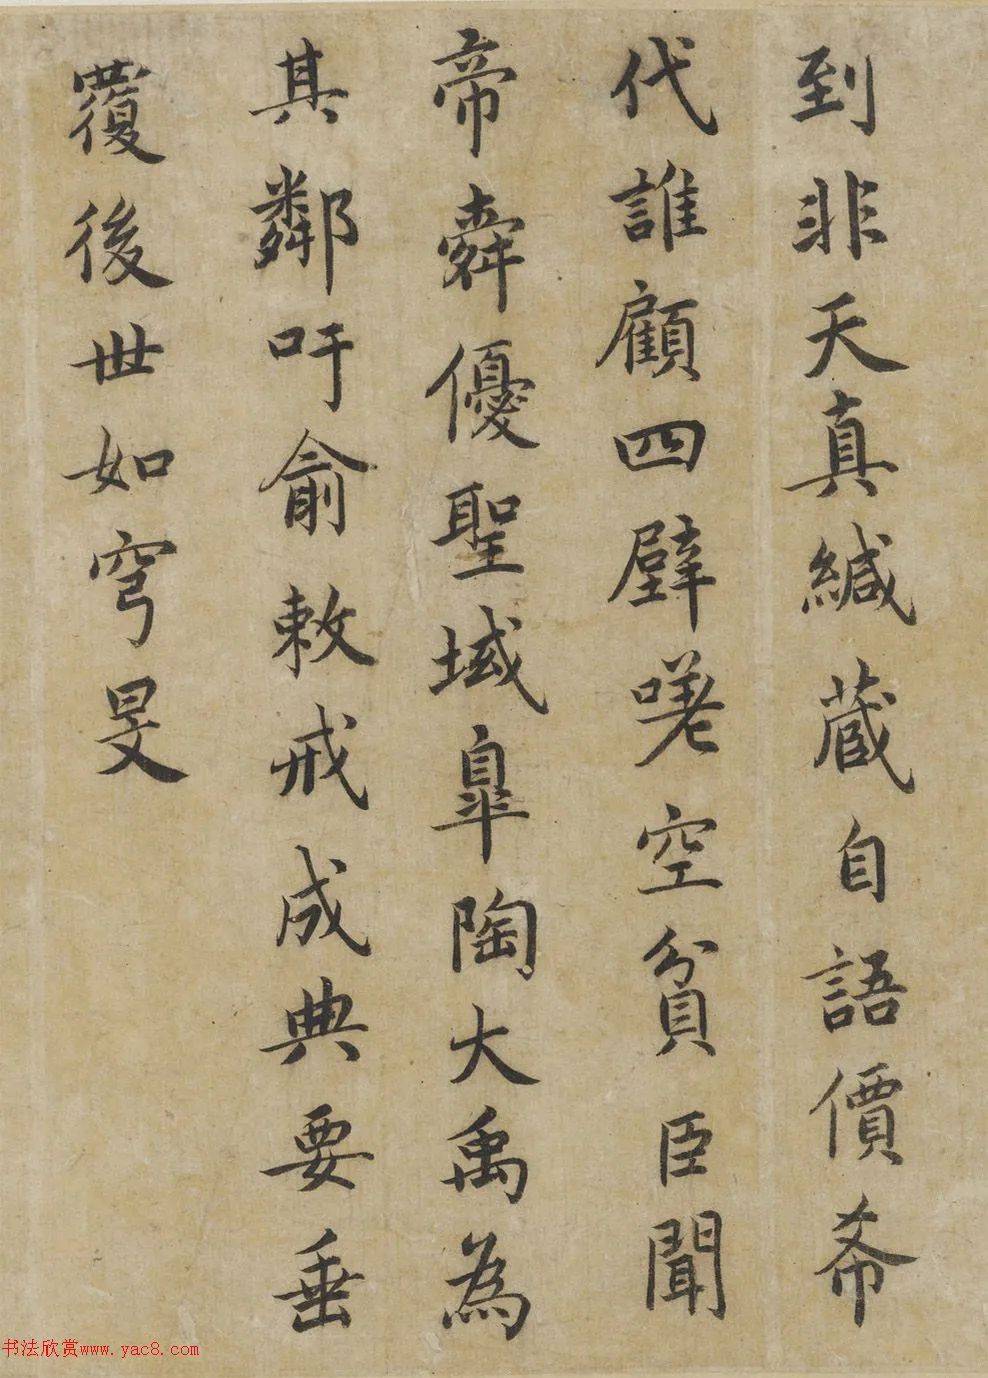 到非天真緘蔵自語價希
代誰顧四壁嘆空貧臣聞
帝舜優聖域臯陶大禹為
其鄰吁俞敕戒成典要垂
覆後世如穹旻
书法欣赏www.yac8.com